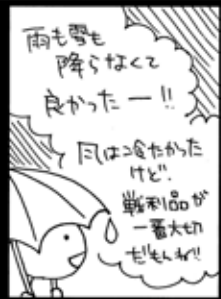 雨も雪も
降らなくて
良かったー!!
風は冷たかった
けど。
戦利品が
一番大切
だもんね!!